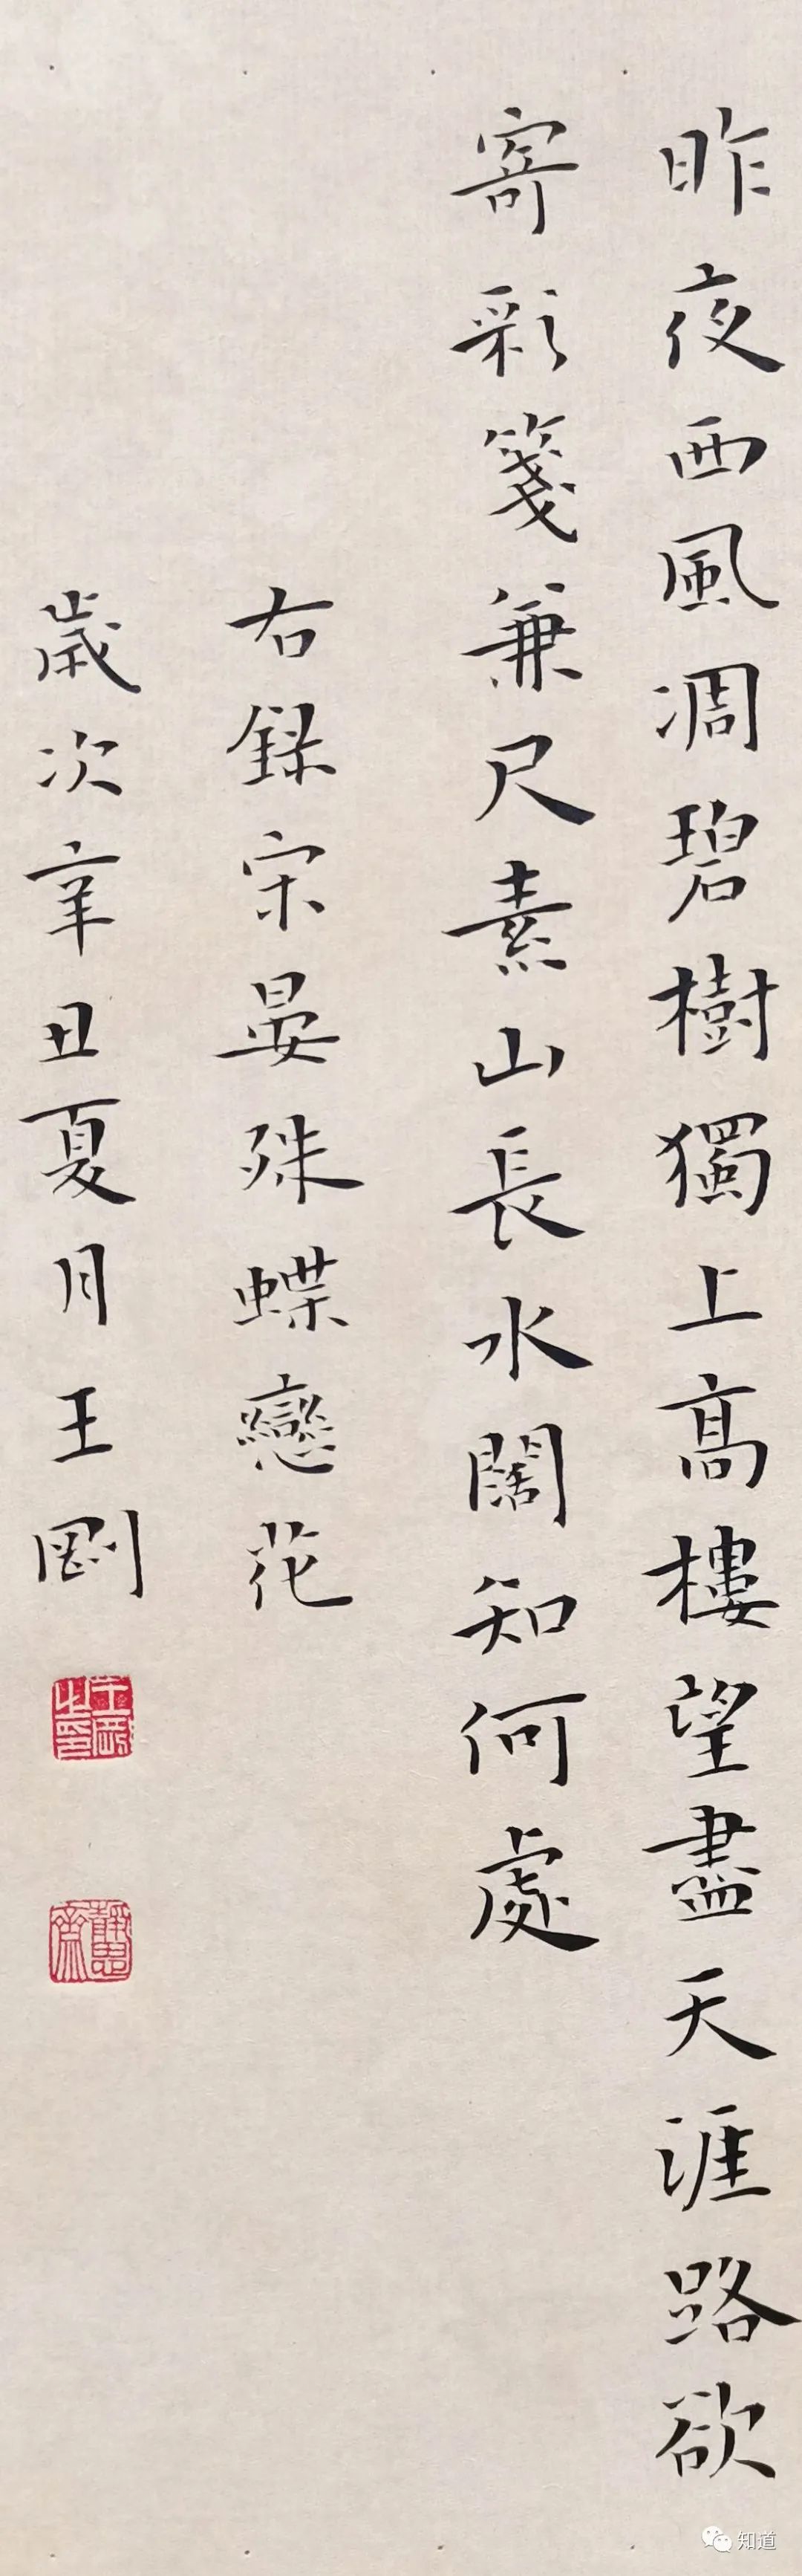 昨夜西風凋碧樹獨上高樓望盡天涯路欲
寄彩箋兼尺素山長水闊知何處
右錄宋晏殊蝶戀花
歲次辛丑夏月王剛
王剛之印
知道